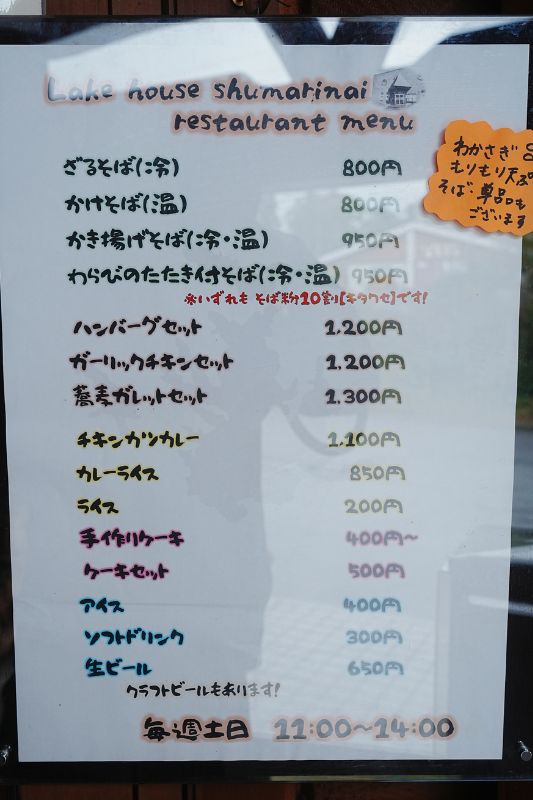 Lake house shumarinai
restaurant menu
ざるそば(冷) 800円
かけそば(温) 800円
かき揚げそば(冷・温) 950円
わらびのたたき付そば(冷・温) 950円
※いずれも そば粉10割[キタワセ]です!
ハンバーグセット 1,200円
ガーリックチキンセット 1,200円
蕎麦ガレットセット 1,300円
チキンカツカレー 1,100円
カレーライス 850円
ライス 200円
手作りケーキ 400円~
ケーキセット 500円
アイス 400円
ソフトドリンク 300円
生ビール 650円
クラフトビールもあります!
毎週土日 11:00~14:00
わかさぎ
もりもり天ぷ
そば・単品も
ございます